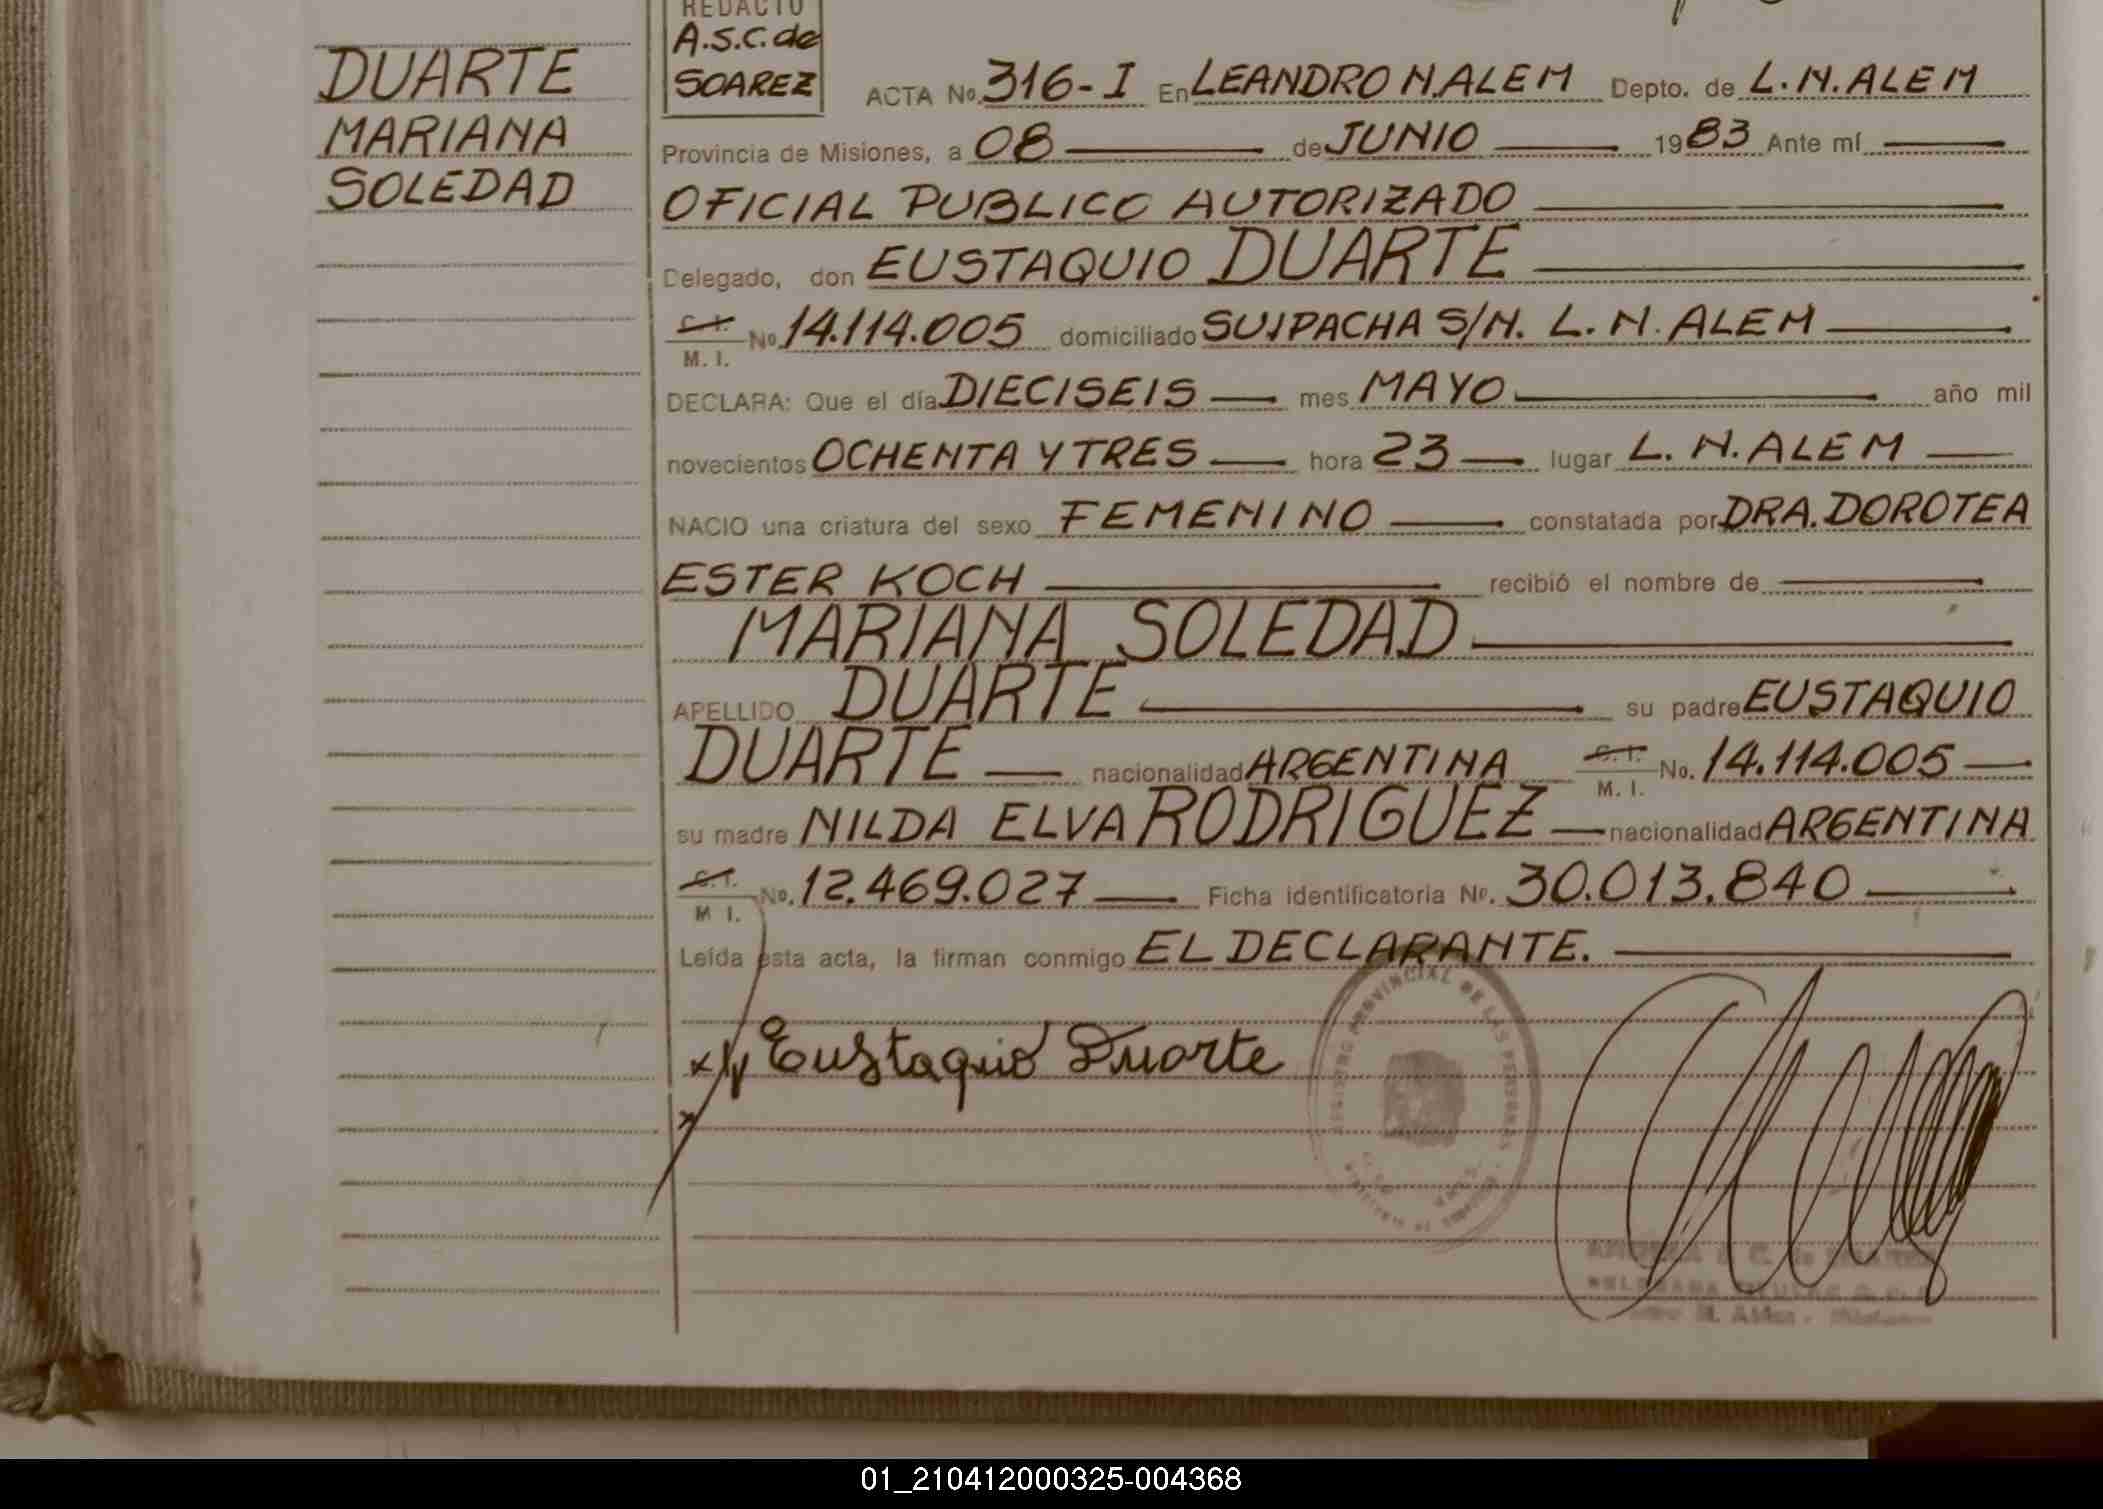 DUARTE
MARIANA
SOLEDAD
REDACTO
A.S.C. de
SOAREZ
ACTA No. 316-I En LEANDRO N. ALEM Depto. de L. N. ALEM
Provincia de Misiones, a 08 de JUNIO 1983 Ante mí
OFICIAL PUBLICO AUTORIZADO
Delegado, don EUSTAQUIO DUARTE
C. I.
M. I. No. 14.114.005 domiciliado SUIPACHA S/N. L. N. ALEM
DECLARA: Que el día DIECISEIS mes MAYO año mil
novecientos OCHENTA Y TRES hora 23 lugar L. N. ALEM
NACIO una criatura del sexo FEMENINO constatada por DRA. DOROTEA
ESTER KOCH recibió el nombre de
MARIANA SOLEDAD
APELLIDO DUARTE su padre EUSTAQUIO
DUARTE nacionalidad ARGENTINA C. I. M. I. No. 14.114.005
su madre NILDA ELVA RODRIGUEZ nacionalidad ARGENTINA
C. I.
M I. No. 12.469.027 Ficha identificatoria No. 30.013.840
Leída esta acta, la firman conmigo EL DECLARANTE.
Eustaquio Duarte
REGISTRO PROVINCIAL DE LAS PERSONAS
01_210412000325-004368